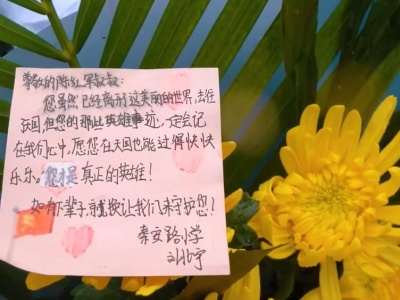 尊敬的陈红军叔叔：
您虽然已经离开这美丽的世界，去往
天国，但您的那些英雄事迹，一定会记
在我们心中，愿您在天国也能过得快快
乐乐。您是真正的英雄！
如有下辈子，就换让我们来守护您！
秦安路小学